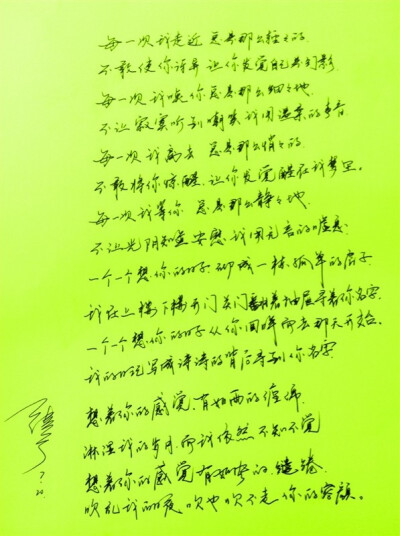 每一次我走近 总是那么轻轻的
不敢使你诧异 让你发觉自己是幻影
每一次我唤你 总是那么细细地
不让寂寞听到 嘲笑我用温柔的声音
每一次我离去 总是那么悄悄的
不敢将你惊醒 让你发觉醒在我梦里。
每一次我等你 总是那么静静地
不让光阴知道 安慰我用无言的嘘息
一个一个想你的日子 砌成一栋孤单的房子
我在上楼下楼开门关门翻着抽屉寻着你名字
一个个想你的日子从你回眸而去那天开始。
我的日记写成诗 诗的背后寻到你名字
想着你的感觉 有如雨的缠绵
淋湿我的岁月 而我依然不知不觉
想着你的感觉 有如风的缱绻
吹乱我的夜 吹也吹不走 你的容颜。